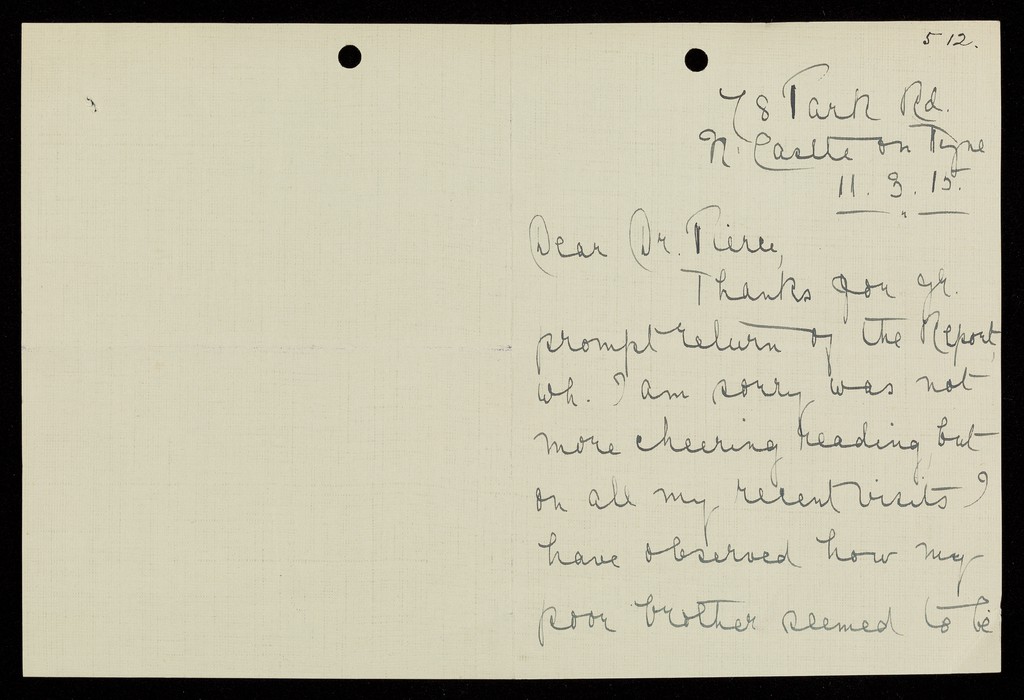 512.
78 Park Rd.
N. Castle on Tyne
11. 3. 15.
Dear Dr. Pierce,
Thanks for yr.
prompt return of the Report,
wh. I am sorry was not
more cheering reading, but
on all my recent visits I
have observed how my
poor brother seemed to be